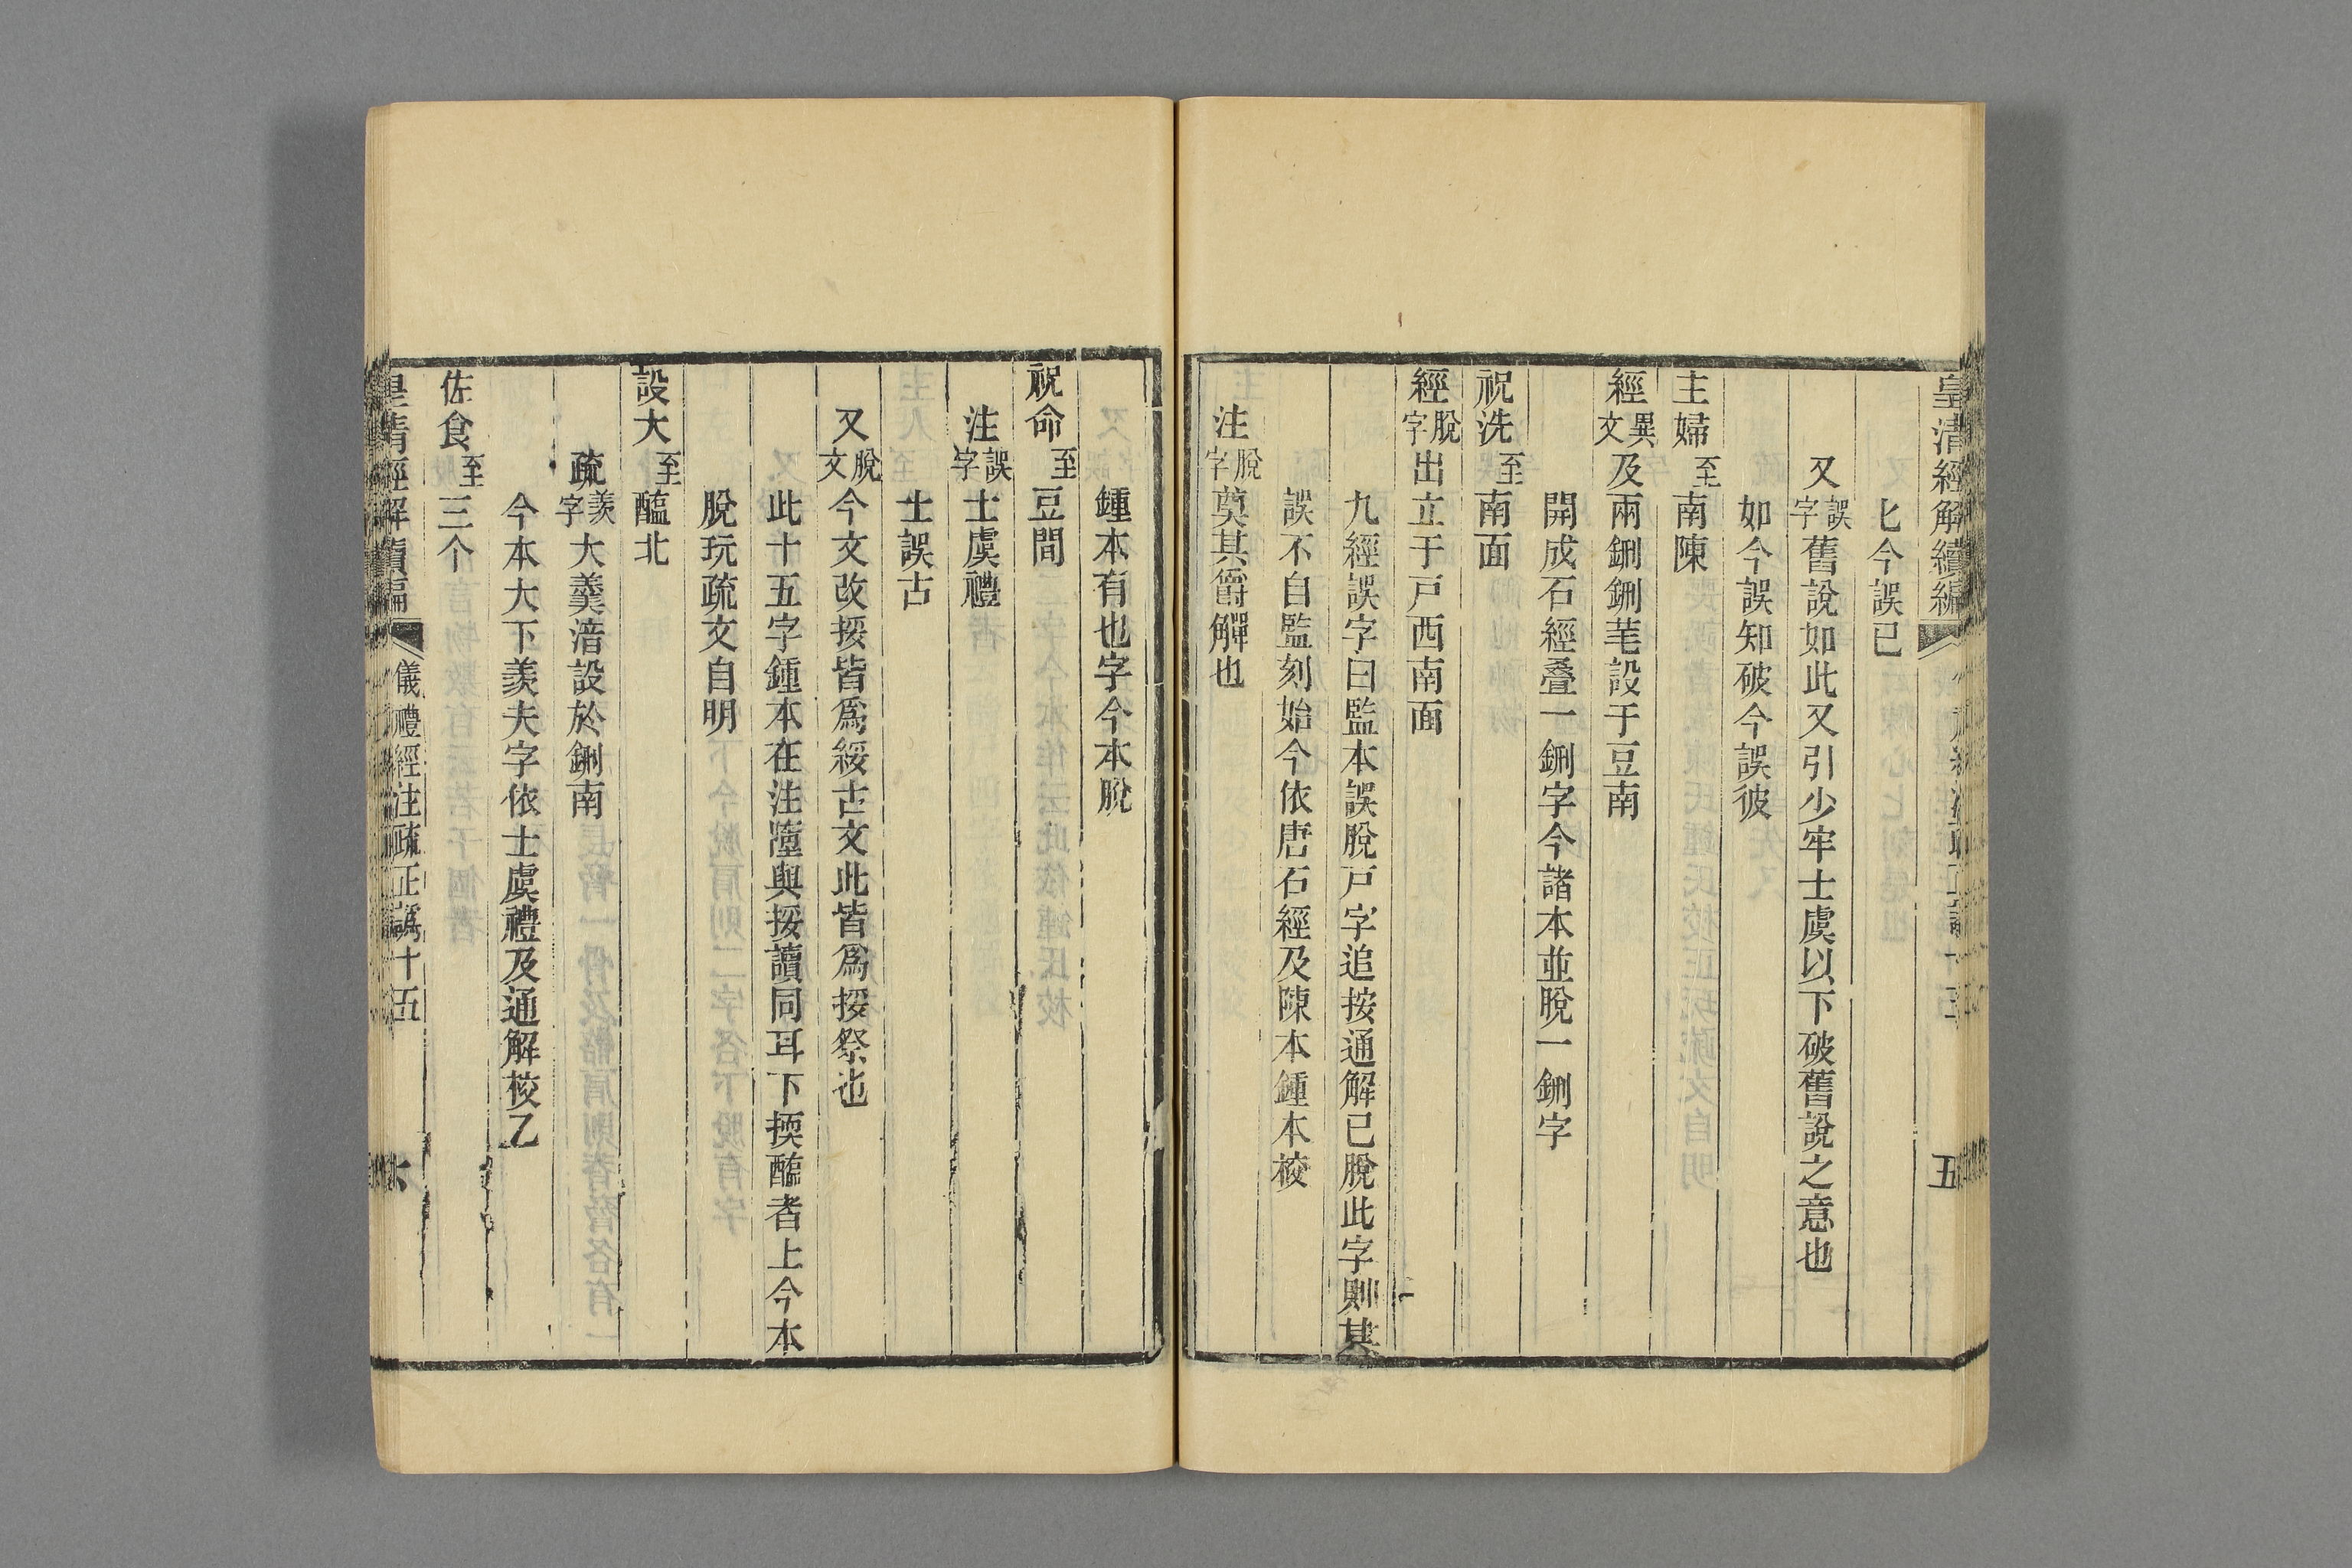 皇清經解續編 五
匕今誤已
又誤字舊說如此又引少牢士虞以下破舊說之意也
如今誤知破今誤彼
主婦至南陳
經異文及兩鉶鉶芼設于豆南
開成石經疊一鉶字今諸本並脫一鉶字
祝洗至南面
經脫字出立于戸西南面
九經誤字曰監本誤脫戸字追按通解已脫此字則其
誤不自監刻始今依唐石經及陳本鍾本校
注脫字奠其爵觶也
鍾本有也字今本脫
祝命至豆間
注誤字士虞禮
士誤古
又脫文今文改挼皆爲綏古文此皆爲挼祭也
此十五字鍾本在注墮與挼讀同耳下㨎醢者上今本
脫玩疏文自明
設大至醢北
疏羨字大羹湆設於鉶南
今本大下羨夫字依士虞禮及通解校乙
佐食至三个
皇清經解續編 儀禮經注疏正譌十五 六